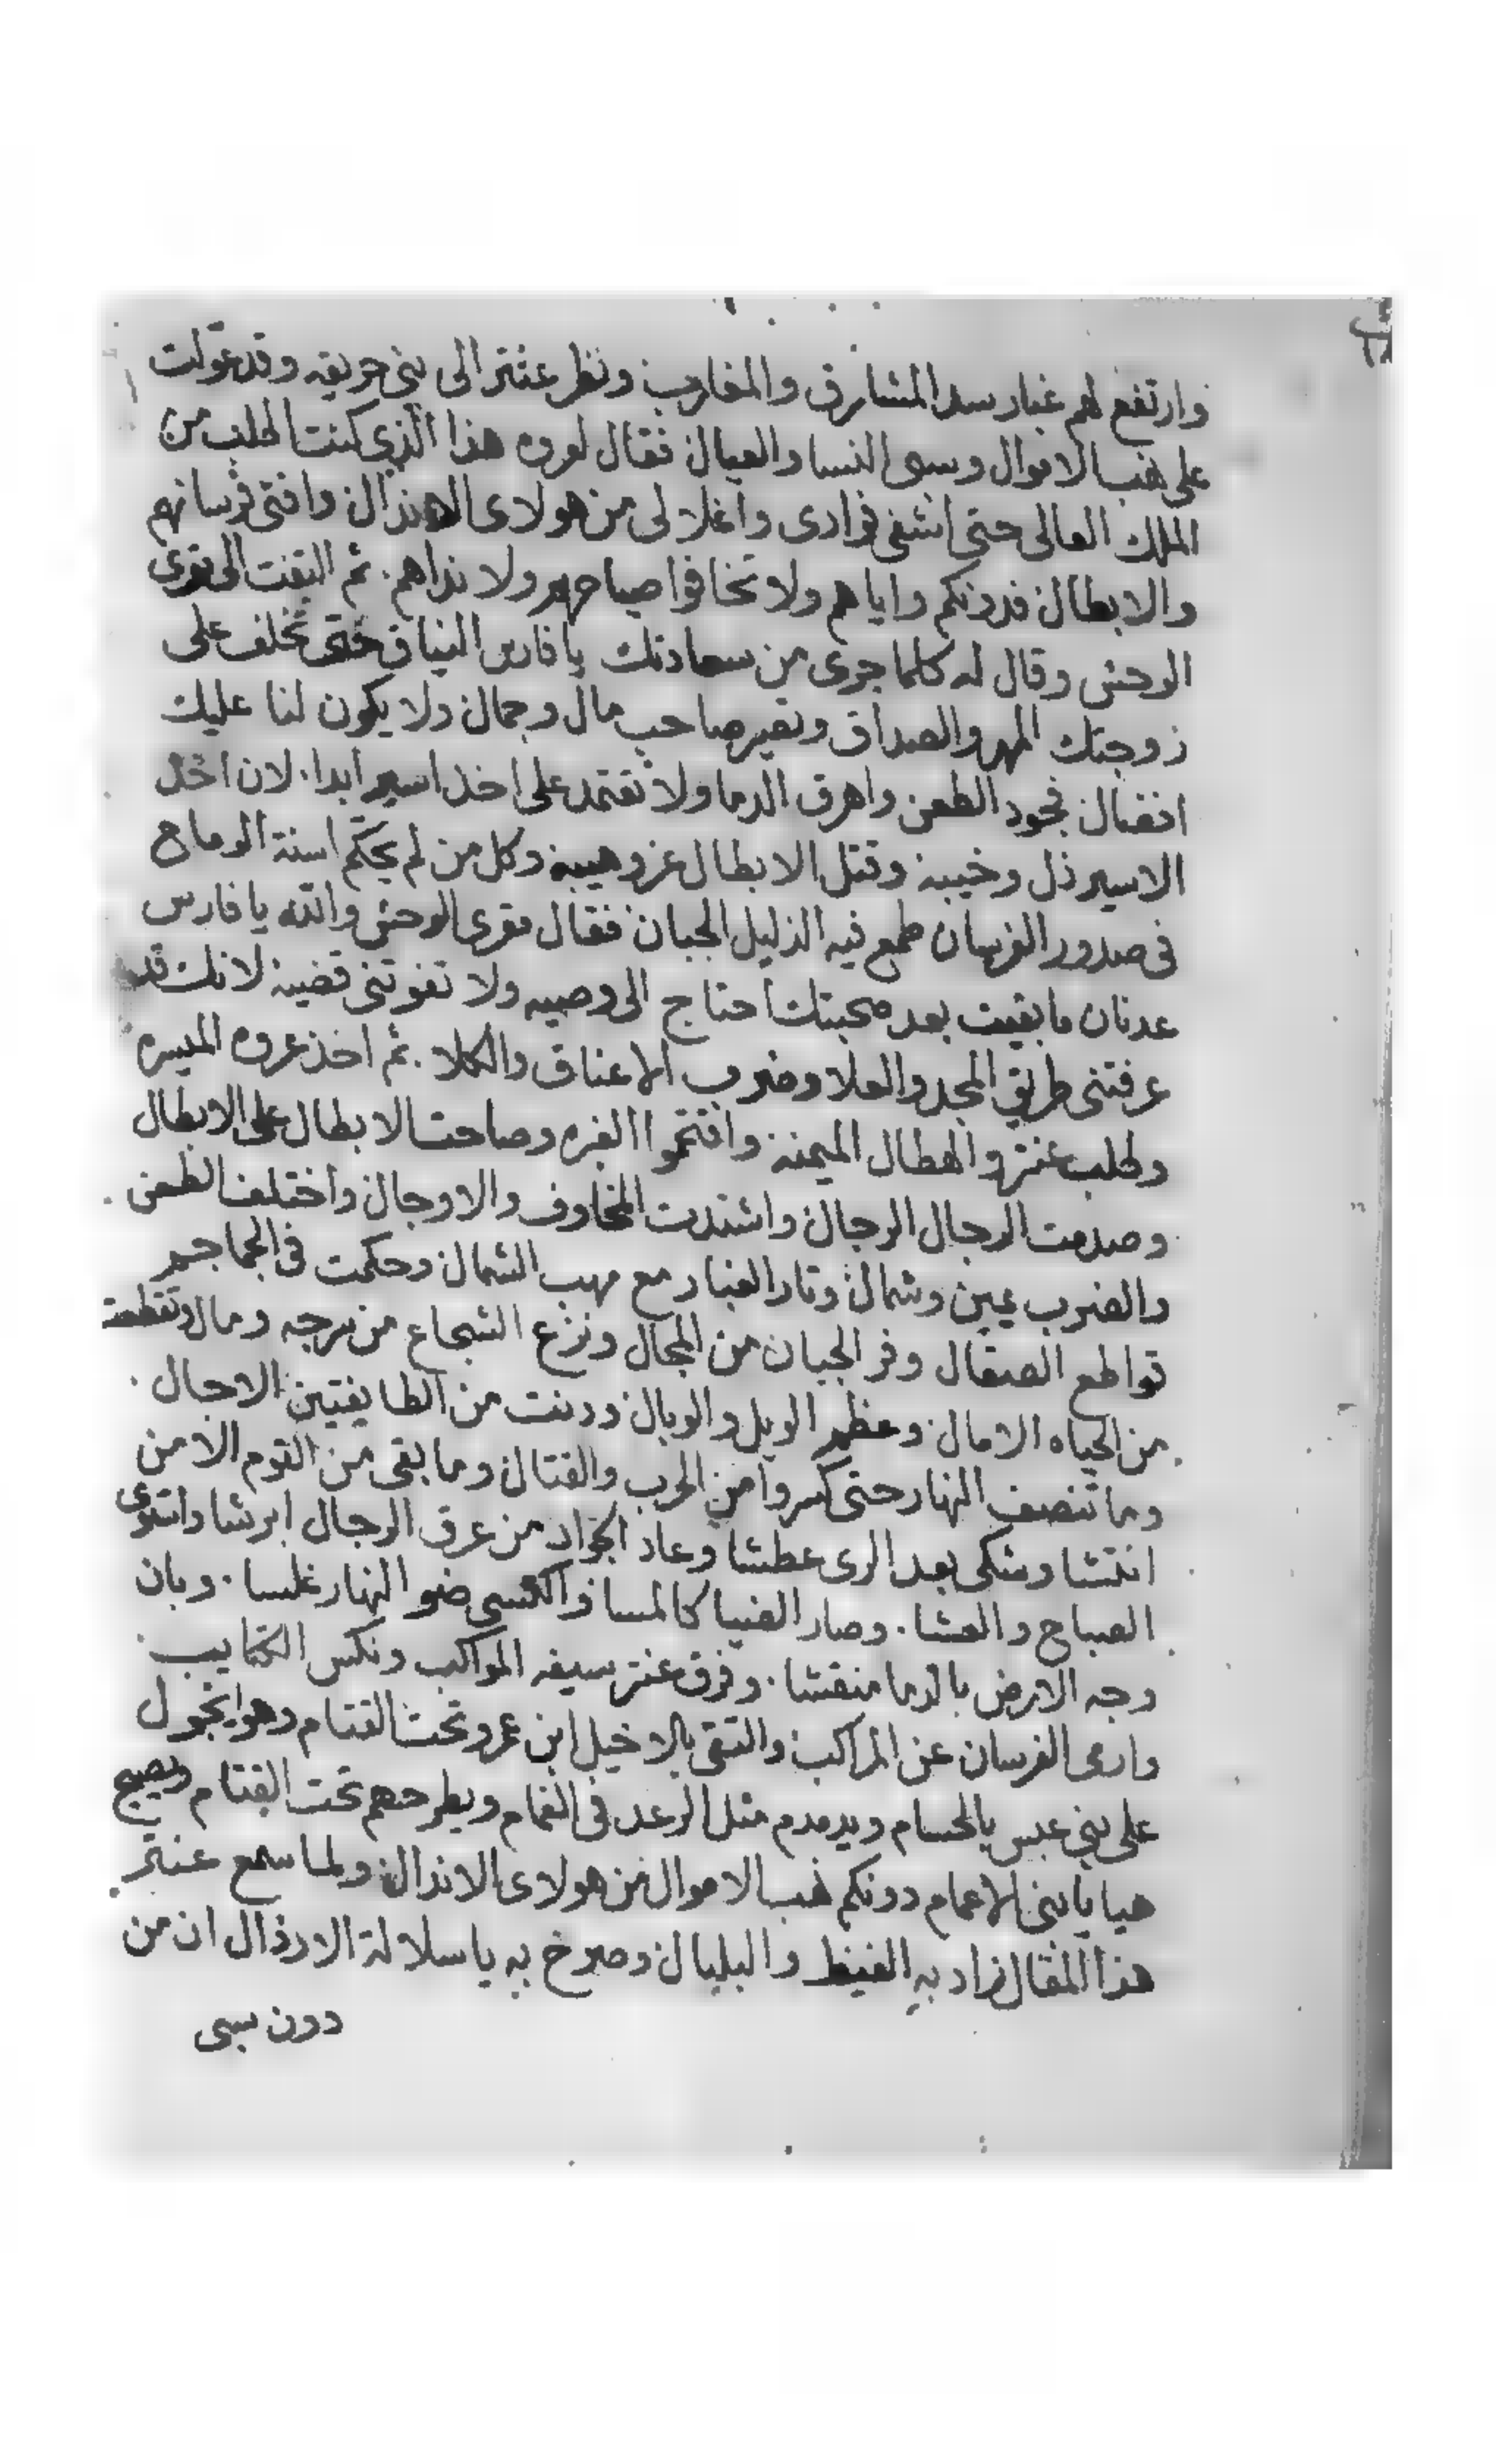 وارتفع لهم غبار سد المشارق والمغارب ونظر عنتر الى بنى حريقه وقد عوّلت
على نهب الاموال وسبى النسا والعيال فقال لعروه هذا الذى كنت اطلب من
الملك العالى حتى اشفى فوادى واغلالى من هولاى الاندال وافنى فرسانهم
والابطال فدونكم واياهم ولا تخافوا صياحهم ولا نداهم. ثم التفت الى مقرى
الوحش وقال له كلما جرى من سعادتك يا فارس النياق حتى تخلف على
زوجتك المهر والصداق وتصير صاحب مال وجمال ولا يكون لنا عليك
افضال فجود الطعن واهرق الدما ولا تعتمد على اخد اسير ابدا. لان اخد
الاسير ذل وخيبه وقتل الابطال عز وهيبه وكل من لم يحكّم اسنة الرماح
فى صدور الفرسان طمع فيه الذليل الجبان فقال مقرى الوحش والله يا فارس
عدنان ما بقيت بعد صحبتك احتاج الى وصيه ولا تفوتنى قضيه لانك قد
عرفتنى طريق المجد والعلا وضرب الاعناق والكلا. ثم اخذ عروه الميسره
وطلب عنتر والهطال الميمنه واقتحموا الغبره وصاحت الابطال على الابطال
وصدمت الرجال الرجال واشتدت المخاوف والاوجال واختلف الطعن
والضرب يمين وشمال وثار الغبار مع مهب الشمال وحكمت فى الجماجم
قواطع الصقال وفر الجبان من المجال ونزع الشجاع من سرجه ومال وتقطعت
من الحياه الامال وعظم الويل والوبال ودنت من الطايفتين الاجال.
وما تنصف النهار حتى كسروا من الحرب والقتال وما بقى من القوم الا من
انتشا وشكى بعد الرى عطشا وعاد الجواد من عرق الرجال ابرشا واستوى
الصباح والعشا. وصار الضيا كالمسا واكتسى ضو النهار غلسا. وبان
وجه الارض بالدما منقشا. وفرق عنتر بسيفه المواكب ونكس الكتايب
وارمى الفرسان عن المراكب والتقى بالاخيل ابن عمرو تحت القتام وهو يجول
على بنى عبس بالحسام ويدمدم مثل الرعد فى الغمام ويطرحهم تحت القتام ويصيح
هيا يا بنى الاعمام دونكم نهب الاموال من هولاى الاندال ولما سمع عنتر
هذا المقال زاد به الغيظ والبلبال وصرخ به يا سلالة الارذال ان من
دون سبى